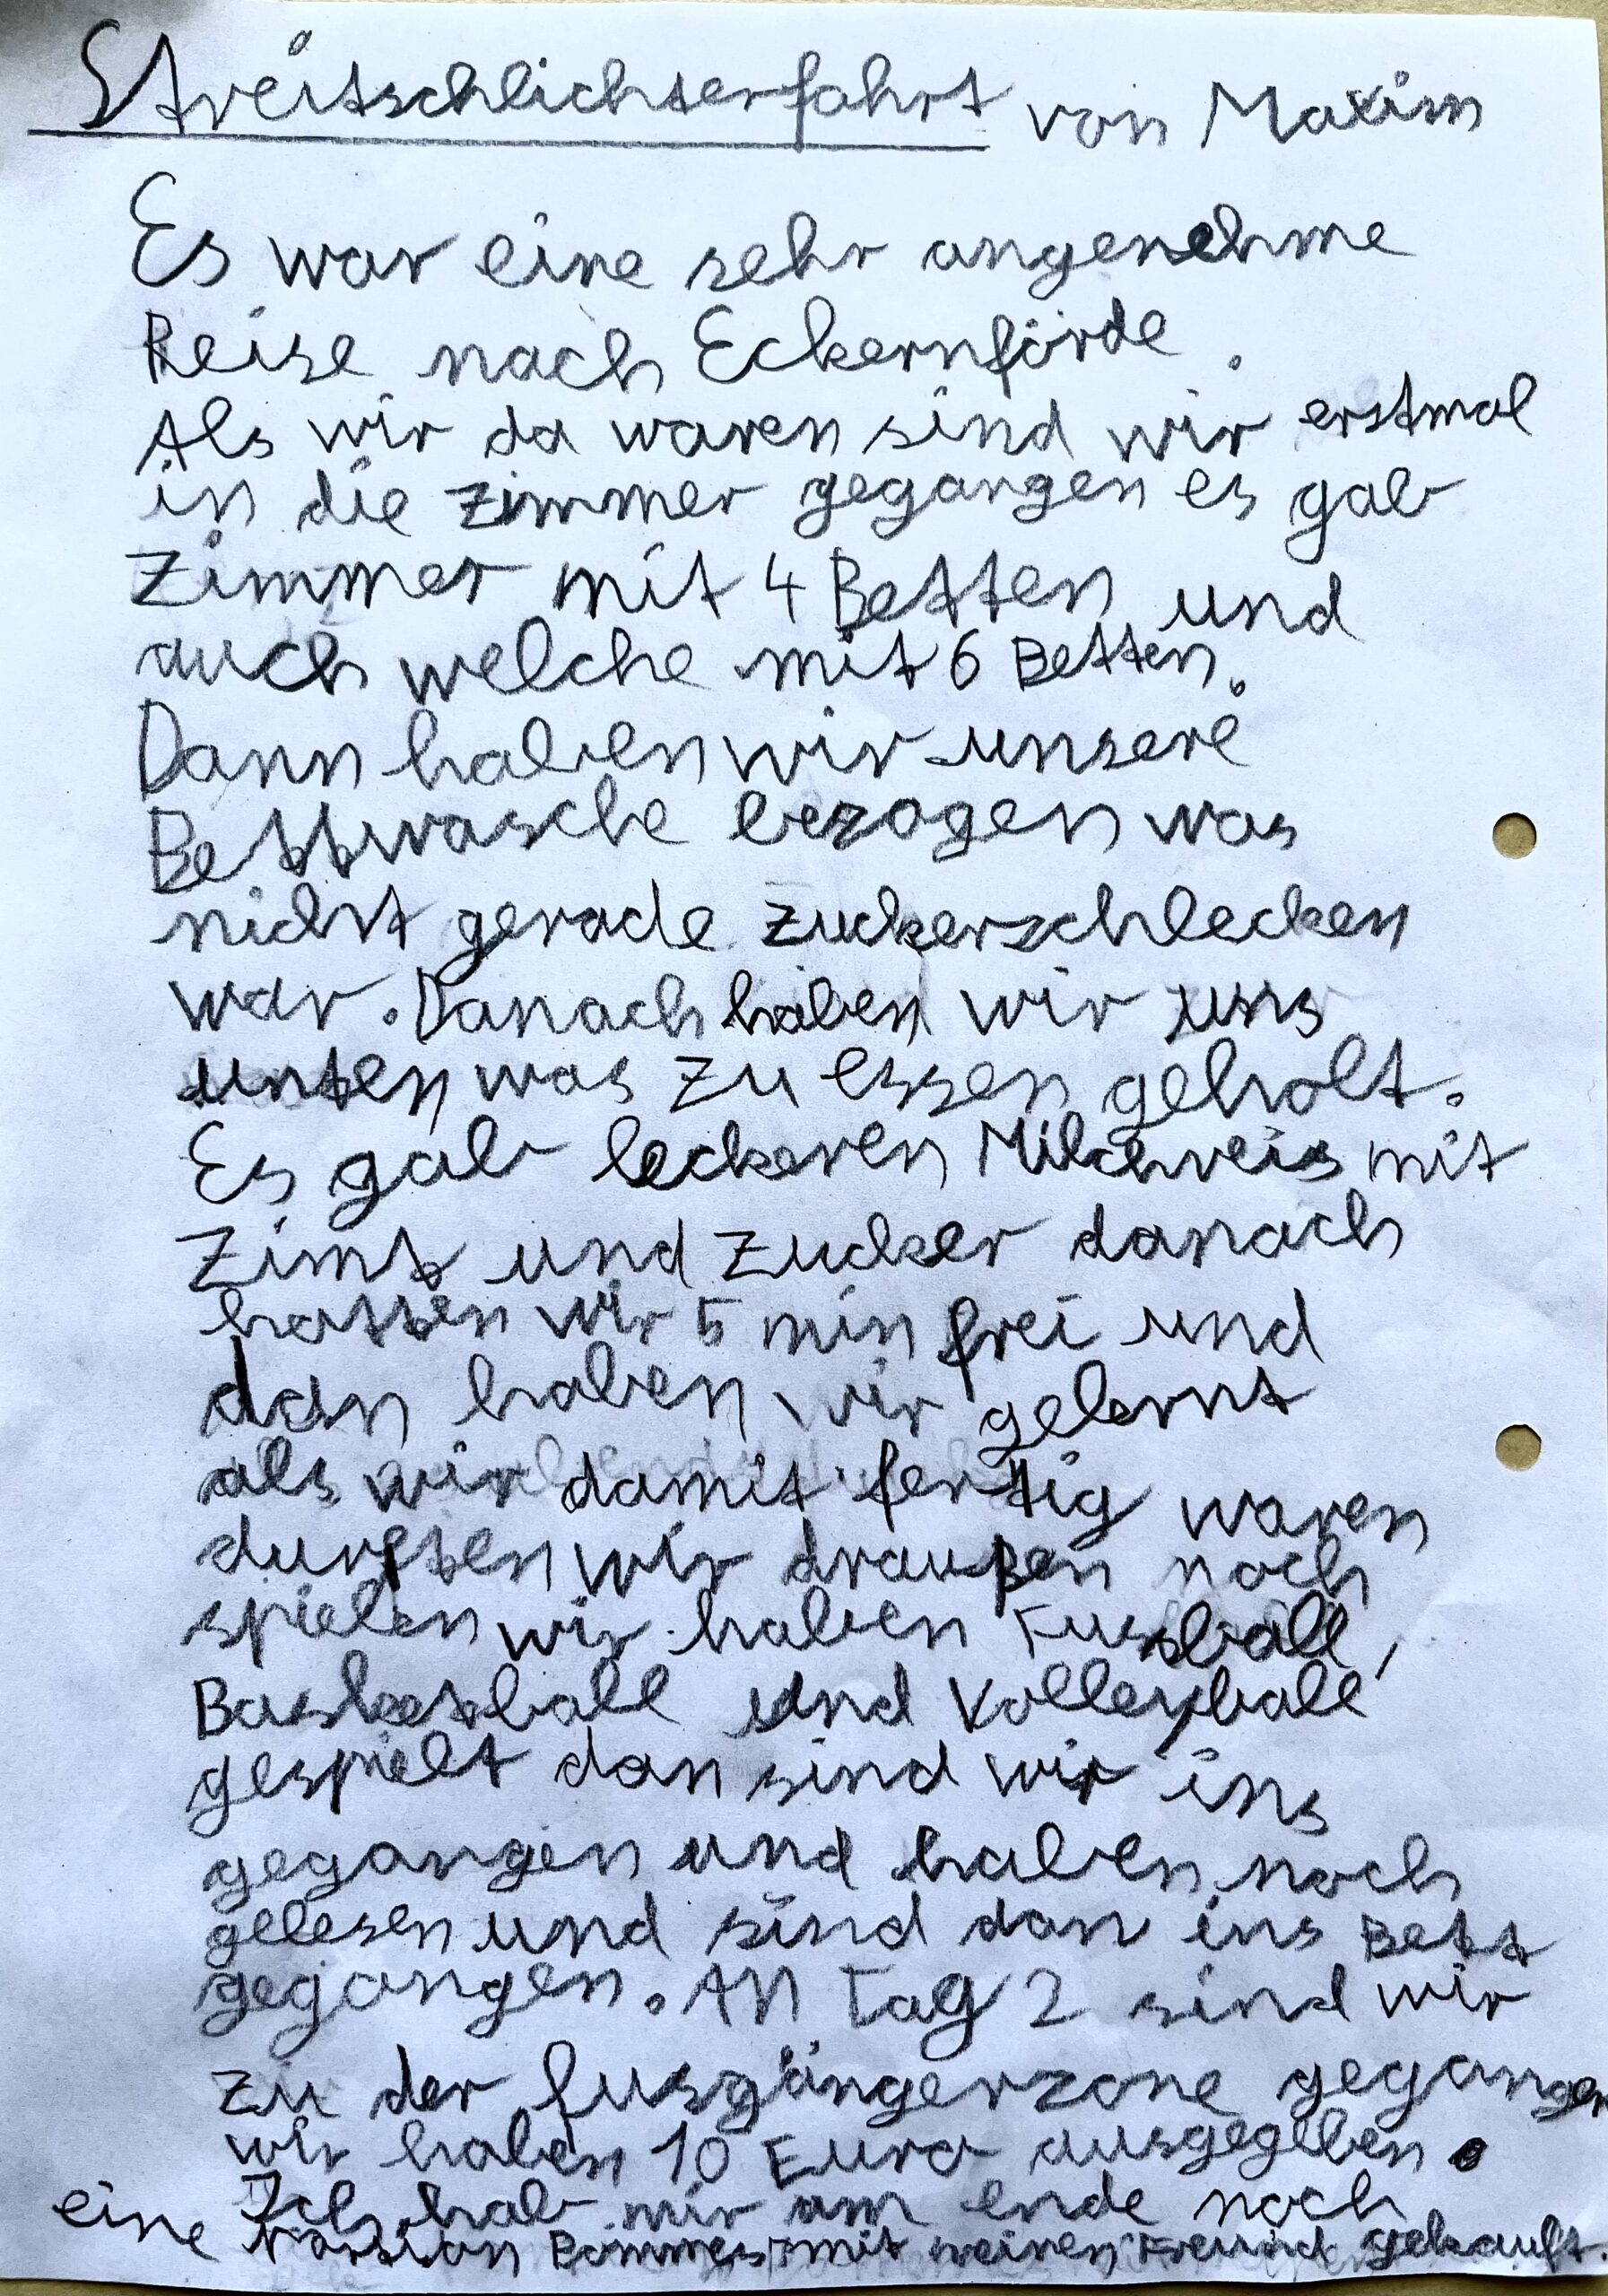 Streitschlichterfahrt von Maxim
Es war eine sehr angenehme
Reise nach Eckernförde.
Als wir da waren sind wir erstmal
in die Zimmer gegangen es gab
Zimmer mit 4 Betten und
auch welche mit 6 Betten.
Dann haben wir unsere
Bettwasche bezogen was
nicht gerade zuckerschlecken
war. Danach haben wir uns
unten was zu essen geholt.
Es gab leckeren Milchreis mit
Zimt und Zucker danach
hatten wir 5 min frei und
dan haben wir gelernt
als wir damit fertig waren
durften wir draußen noch
spielen wir haben Fussball,
Basketball und Volleyball
gespielt dan sind wir ins
gegangen und haben noch
gelesen und sind dan ins Bett
gegangen. AN Tag 2 sind wir
zu der fusgängerzone gegangen
wir haben 10 Euro ausgegeben.
Ich hab mir am ende noch
eine Pommes mit meinen Freund gekauft.